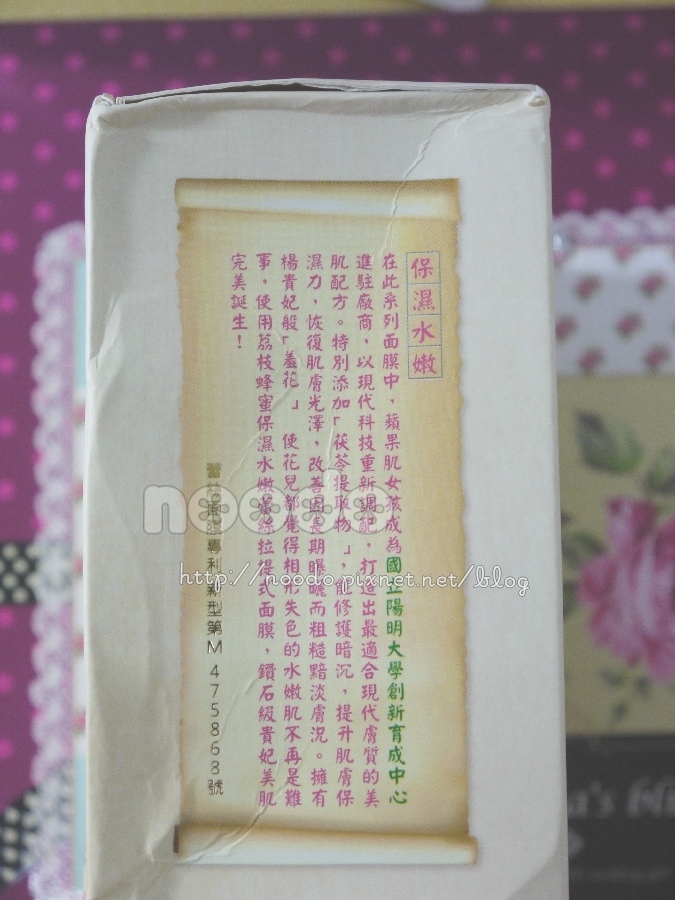 保濕水嫩
在此系列面膜中，蘋果肌女孩成為國立陽明大學創新育成中心
進駐廠商，以現代科技重新調配，打造出最適合現代膚質的美
肌配方。特別添加「茯苓提取物」，能修護暗沉，提升肌膚保
濕力，恢復肌膚光澤，改善因長期曝曬而粗糙黯淡膚況。擁有
楊貴妃般「羞花」 使花兒都覺得相形失色的水嫩肌不再是難
事，使用荔枝蜂蜜保濕水嫩蕾絲拉提式面膜，鑽石級貴妃美肌
完美誕生！
蕾絲面膜專利新型第M 475868號
noodo
http://noodo.pixnet.net/blog
a's bli